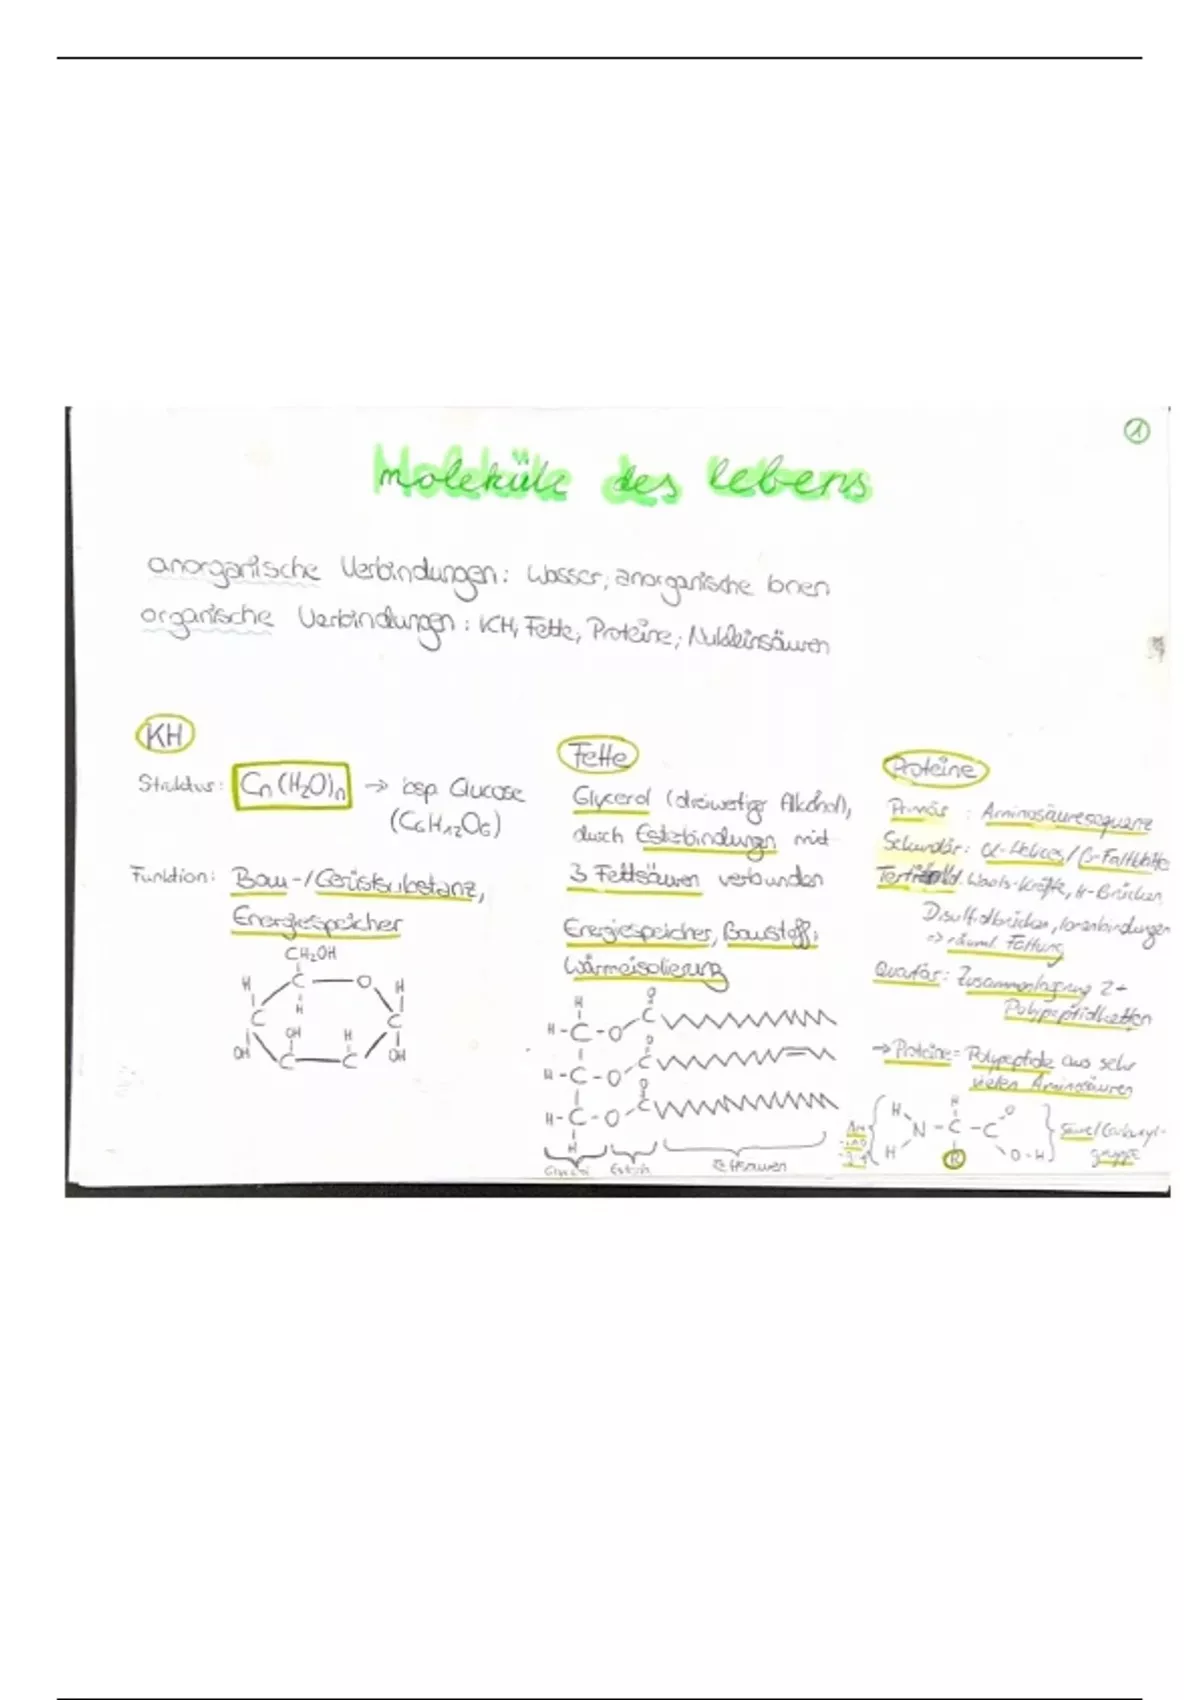 ①
Moleküle des Lebens
anorganische Verbindungen: Wasser, anorganische Ionen
organische Verbindungen: KH, Fette, Proteine, Nukleinsäuren
KH
Struktur: Cn(H₂O)n → bsp. Glucose
(C₆H₁₂O₆)
Funktion: Bau-/Gerüstsubstanz,
Energiespeicher
CH₂OH
C O
H H H
C C
OH H
OH C C OH
Fette
Glycerol (dreiwertiger Alkohol),
durch Esterbindungen mit
3 Fettsäuren verbunden
Energiespeicher, Baustoff,
Wärmeisolierung
H O
H-C-O-C
O
H-C-O-C
O
H-C-O-C
H
Fettsäuren
Proteine
Primär: Aminosäuresequenz
Sekundär: α-Helices/β-Faltblätter
Waals-Kräfte, H-Brücken
Disulfidbrücken, Ionenbindungen
=> räuml. Faltung
Quartär: Zusammenlagerung 2+
Polypeptidketten
→ Proteine = Polypeptide aus sehr
vielen Aminosäuren
H H O
N-C-C
H R O-H
gruppe